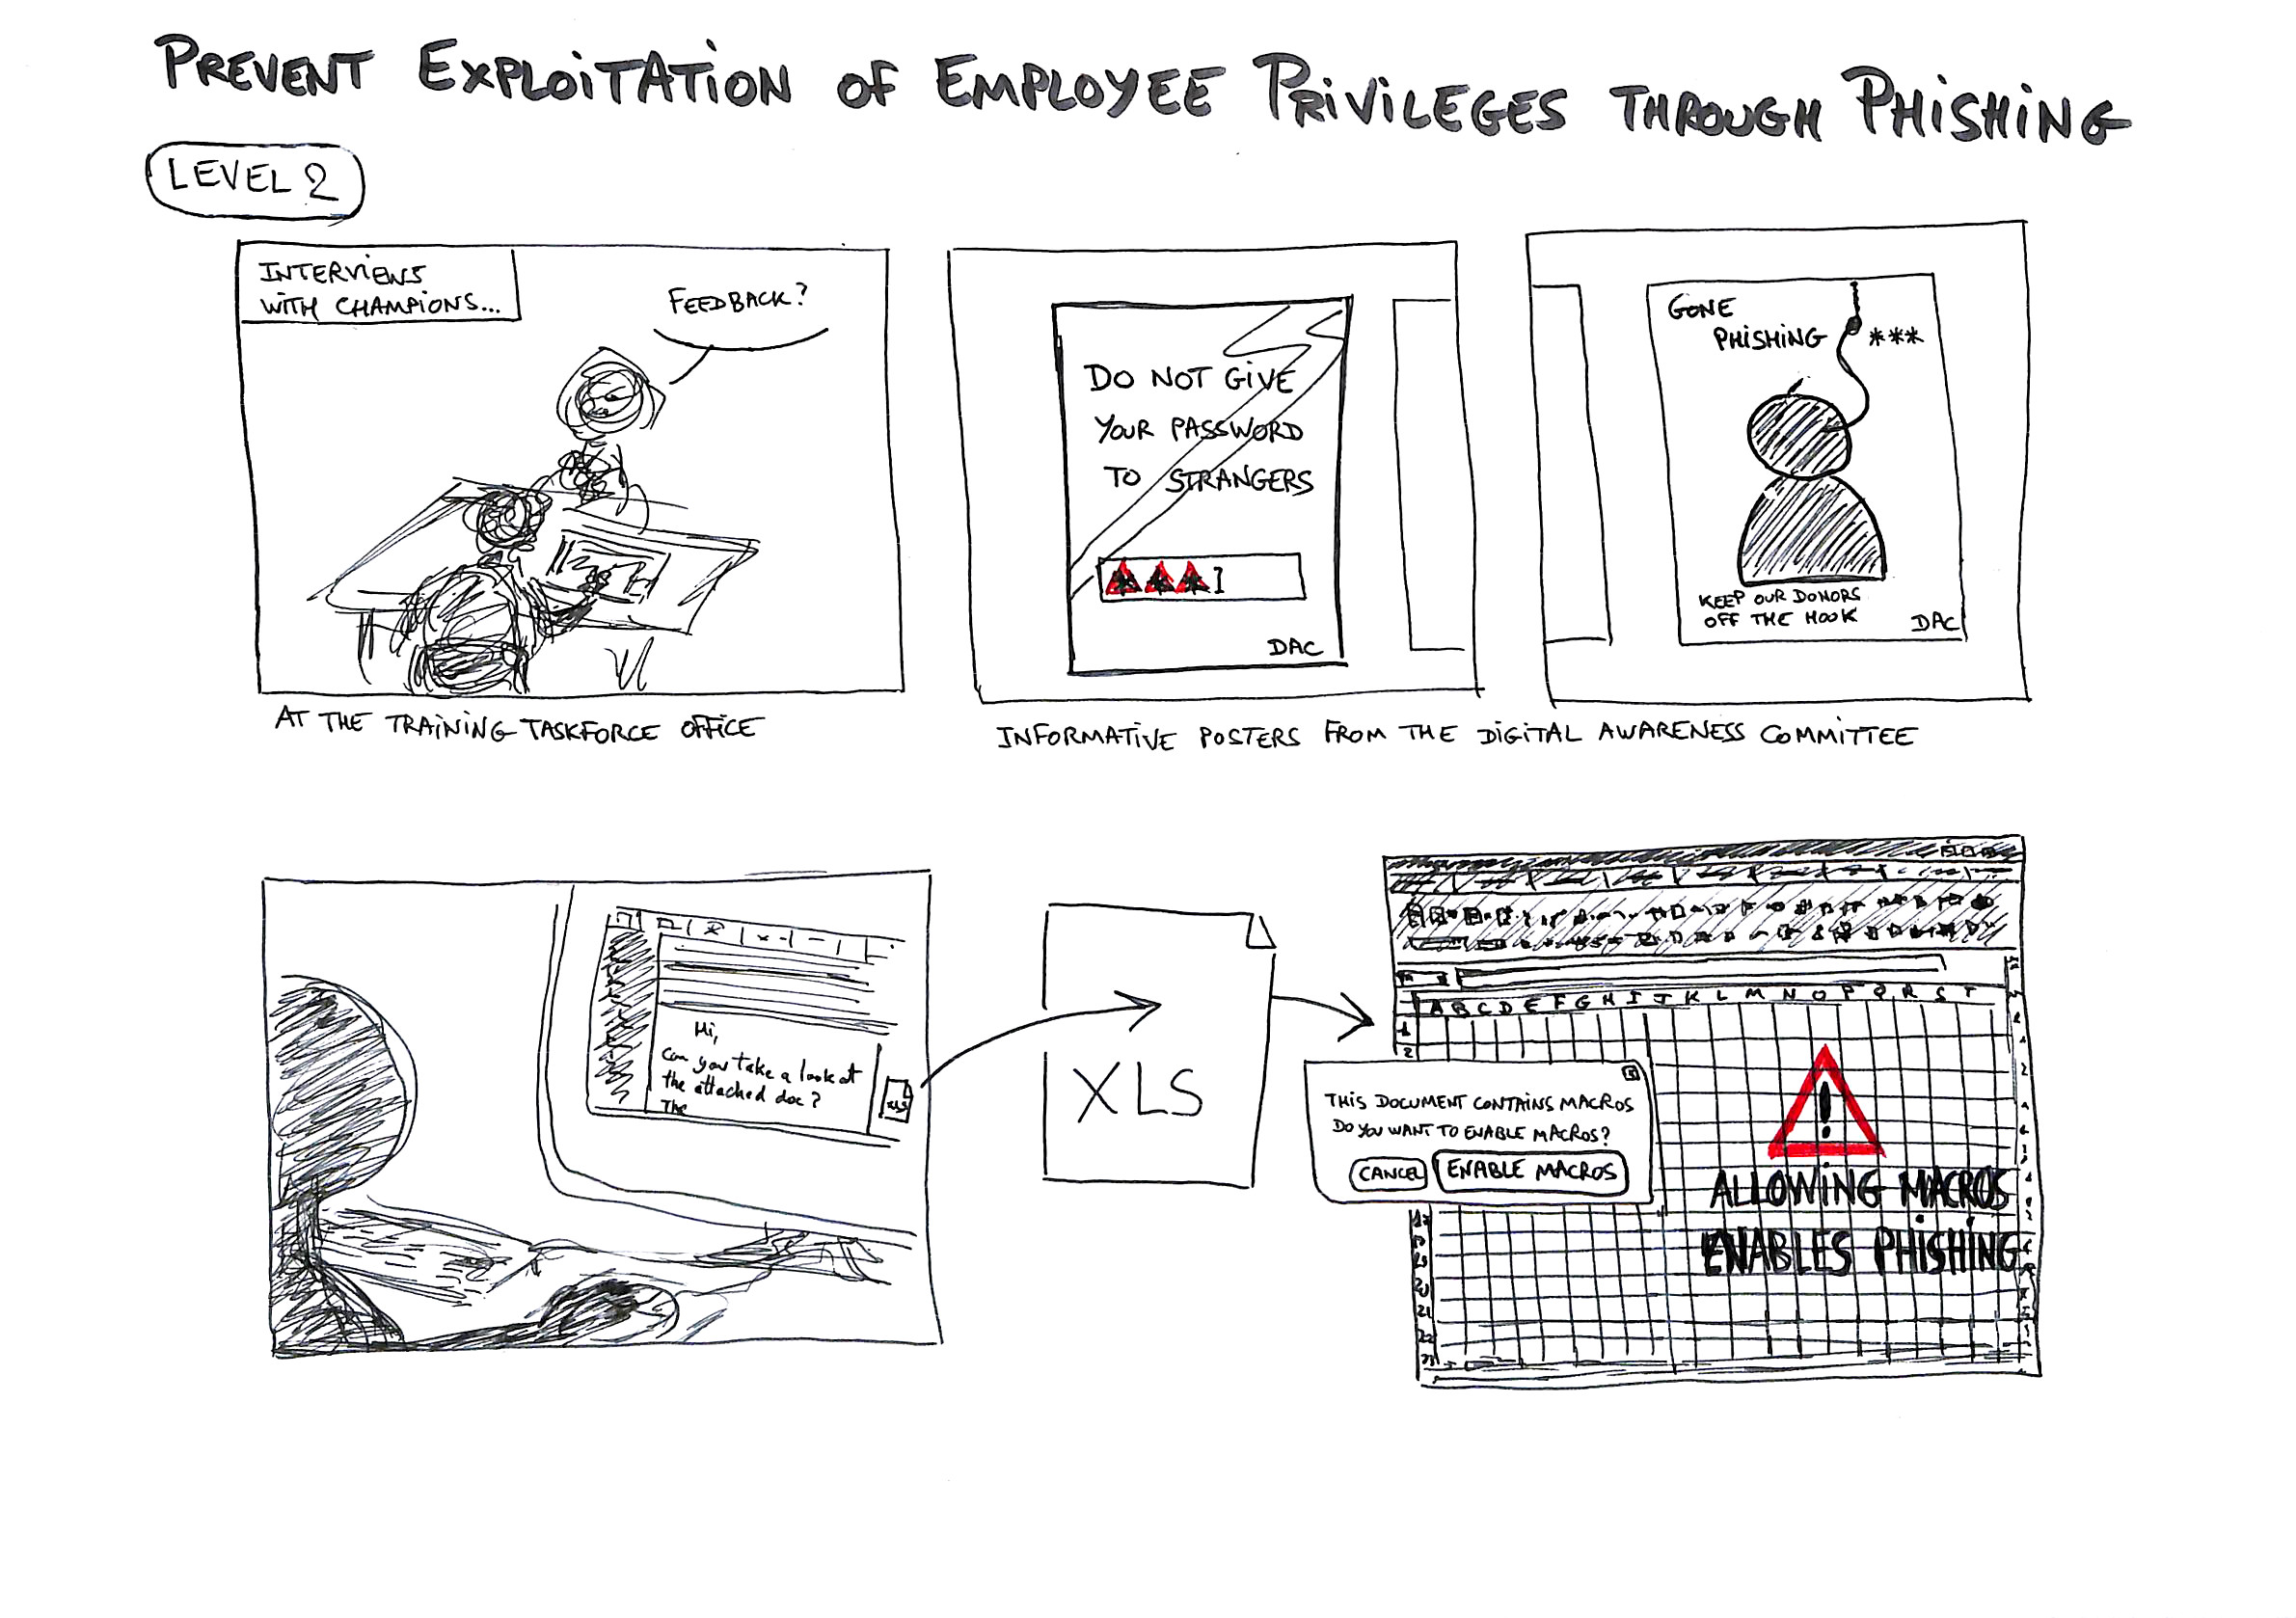 PREVENT EXPLOITATION OF EMPLOYEE PRIVILEGES THROUGH PHISHING
LEVEL 2
INTERVIEWS
WITH CHAMPIONS...
FEEDBACK?
AT THE TRAINING TASKFORCE OFFICE
DO NOT GIVE
YOUR PASSWORD
TO STRANGERS
DAC
GONE
PHISHING ***
KEEP OUR DONORS
OFF THE HOOK
DAC
INFORMATIVE POSTERS FROM THE DIGITAL AWARENESS COMMITTEE
Hi,
Can you take a look at
the attached doc?
The
XLS
XLS
A B C D E F G H I J K L M N O P Q R S T
1
2
THIS DOCUMENT CONTAINS MACROS
DO YOU WANT TO ENABLE MACROS?
CANCEL ENABLE MACROS
!
ALLOWING MACROS
ENABLES PHISHING
20
21
22